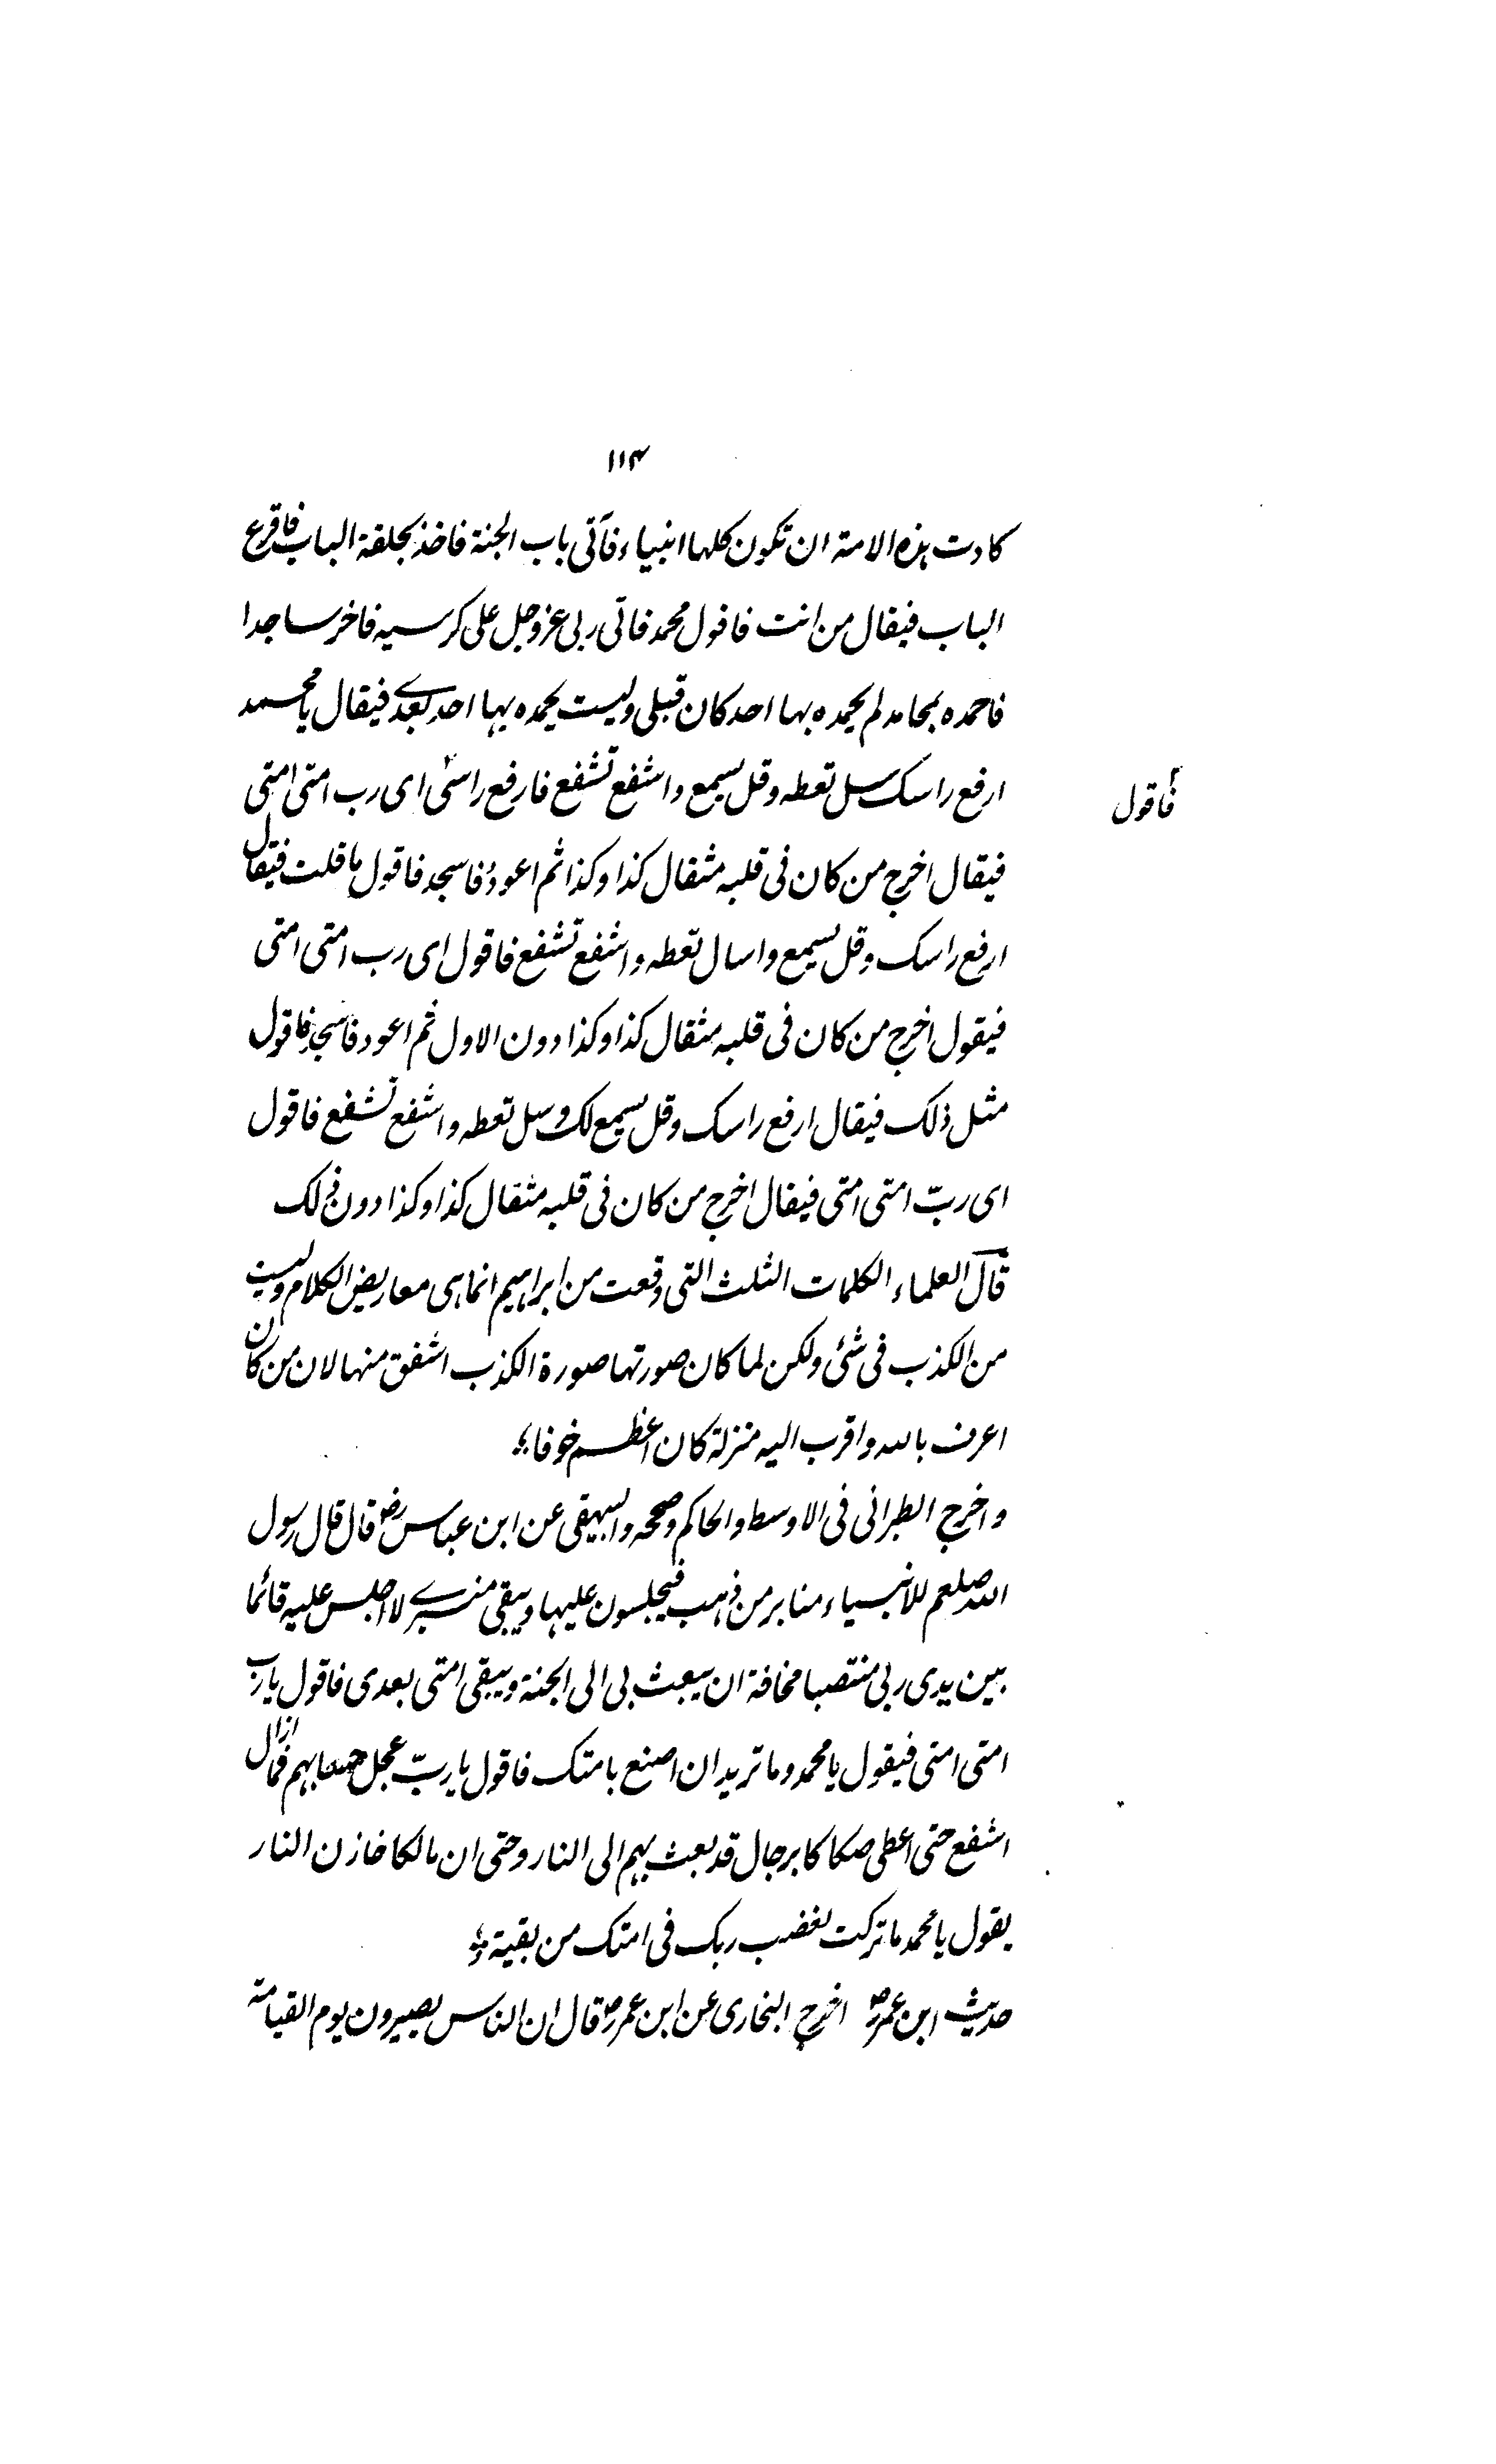 ۱۱۴
كادت ہذہ الامۃ ان تكون كلہا انبياء فآتی باب الجنۃ فاخذ بحلقۃ الباب فاقرع
الباب فيقال من انت فاقول محمد فاتی ربی عزوجل علی كرسيہ فاخر ساجدا
فاحمدہ بمحامد لم يحمدہ بہا احد كان قبلی وليست يحمدہ بہا احد بعدے فيقال يا محمد
ارفع راسک سل تعطہ وقل يسمع واشفع تشفع فارفع راسی ای رب امتی امتی
فأقول
فيقال اخرج من كان فی قلبہ مثقال كذا وكذا ثم اعود فاسجد فاقول ما قلت فيقال
ارفع راسک وقل يسمع واسال تعطہ واشفع تشفع فاقول ای رب امتی امتی
فيقول اخرج من كان فی قلبہ مثقال كذا وكذا دون الاول ثم اعود فاسجد فاقول
مثل ذلک فيقال ارفع راسک وقل يسمع لک وسل تعطہ واشفع تشفع فاقول
ای ربّ امتی امتی فيقال اخرج من كان فی قلبہ مثقال كذا وكذا دون ذلک
قال العلماء الكلمات الثلث التی وقعت من ابراہيم انما ہی معاريض الكلام وليست
من الكذب فی شئی ولكن لما كان صورتہا صورۃ الكذب اشفق منہا لان من كان
اعرف باللہ واقرب اليہ منزلۃ كان اعظم خوفا
واخرج الطبرانی فی الاوسط والحاكم وصححہ والبيہقی عن ابن عباس رض قال قال رسول
اللہ صلعم للانبياء منابر من ذہب فيجلسون عليہا ويبقی منبرے لا اجلس عليہ قائما
بين يدی ربی منتصبا مخافۃ ان يبعث بی الی الجنۃ ويبقی امتی بعدی فاقول يا رب
امتی امتی فيقول يا محمد وما تريد ان اصنع بامتک فاقول يا ربّ عجل حسابہم فما ازال
اشفع حتی اعطی صكاكا برجال قد بعث بہم الی النار وحتی ان مالكا خازن النار
يقول يا محمد ما تركت لغضب ربک فی امتک من بقيۃ
حديث ابن عمر رض اخرج البخاری عن ابن عمر رض قال ان الناس يصيرون يوم القيامۃ